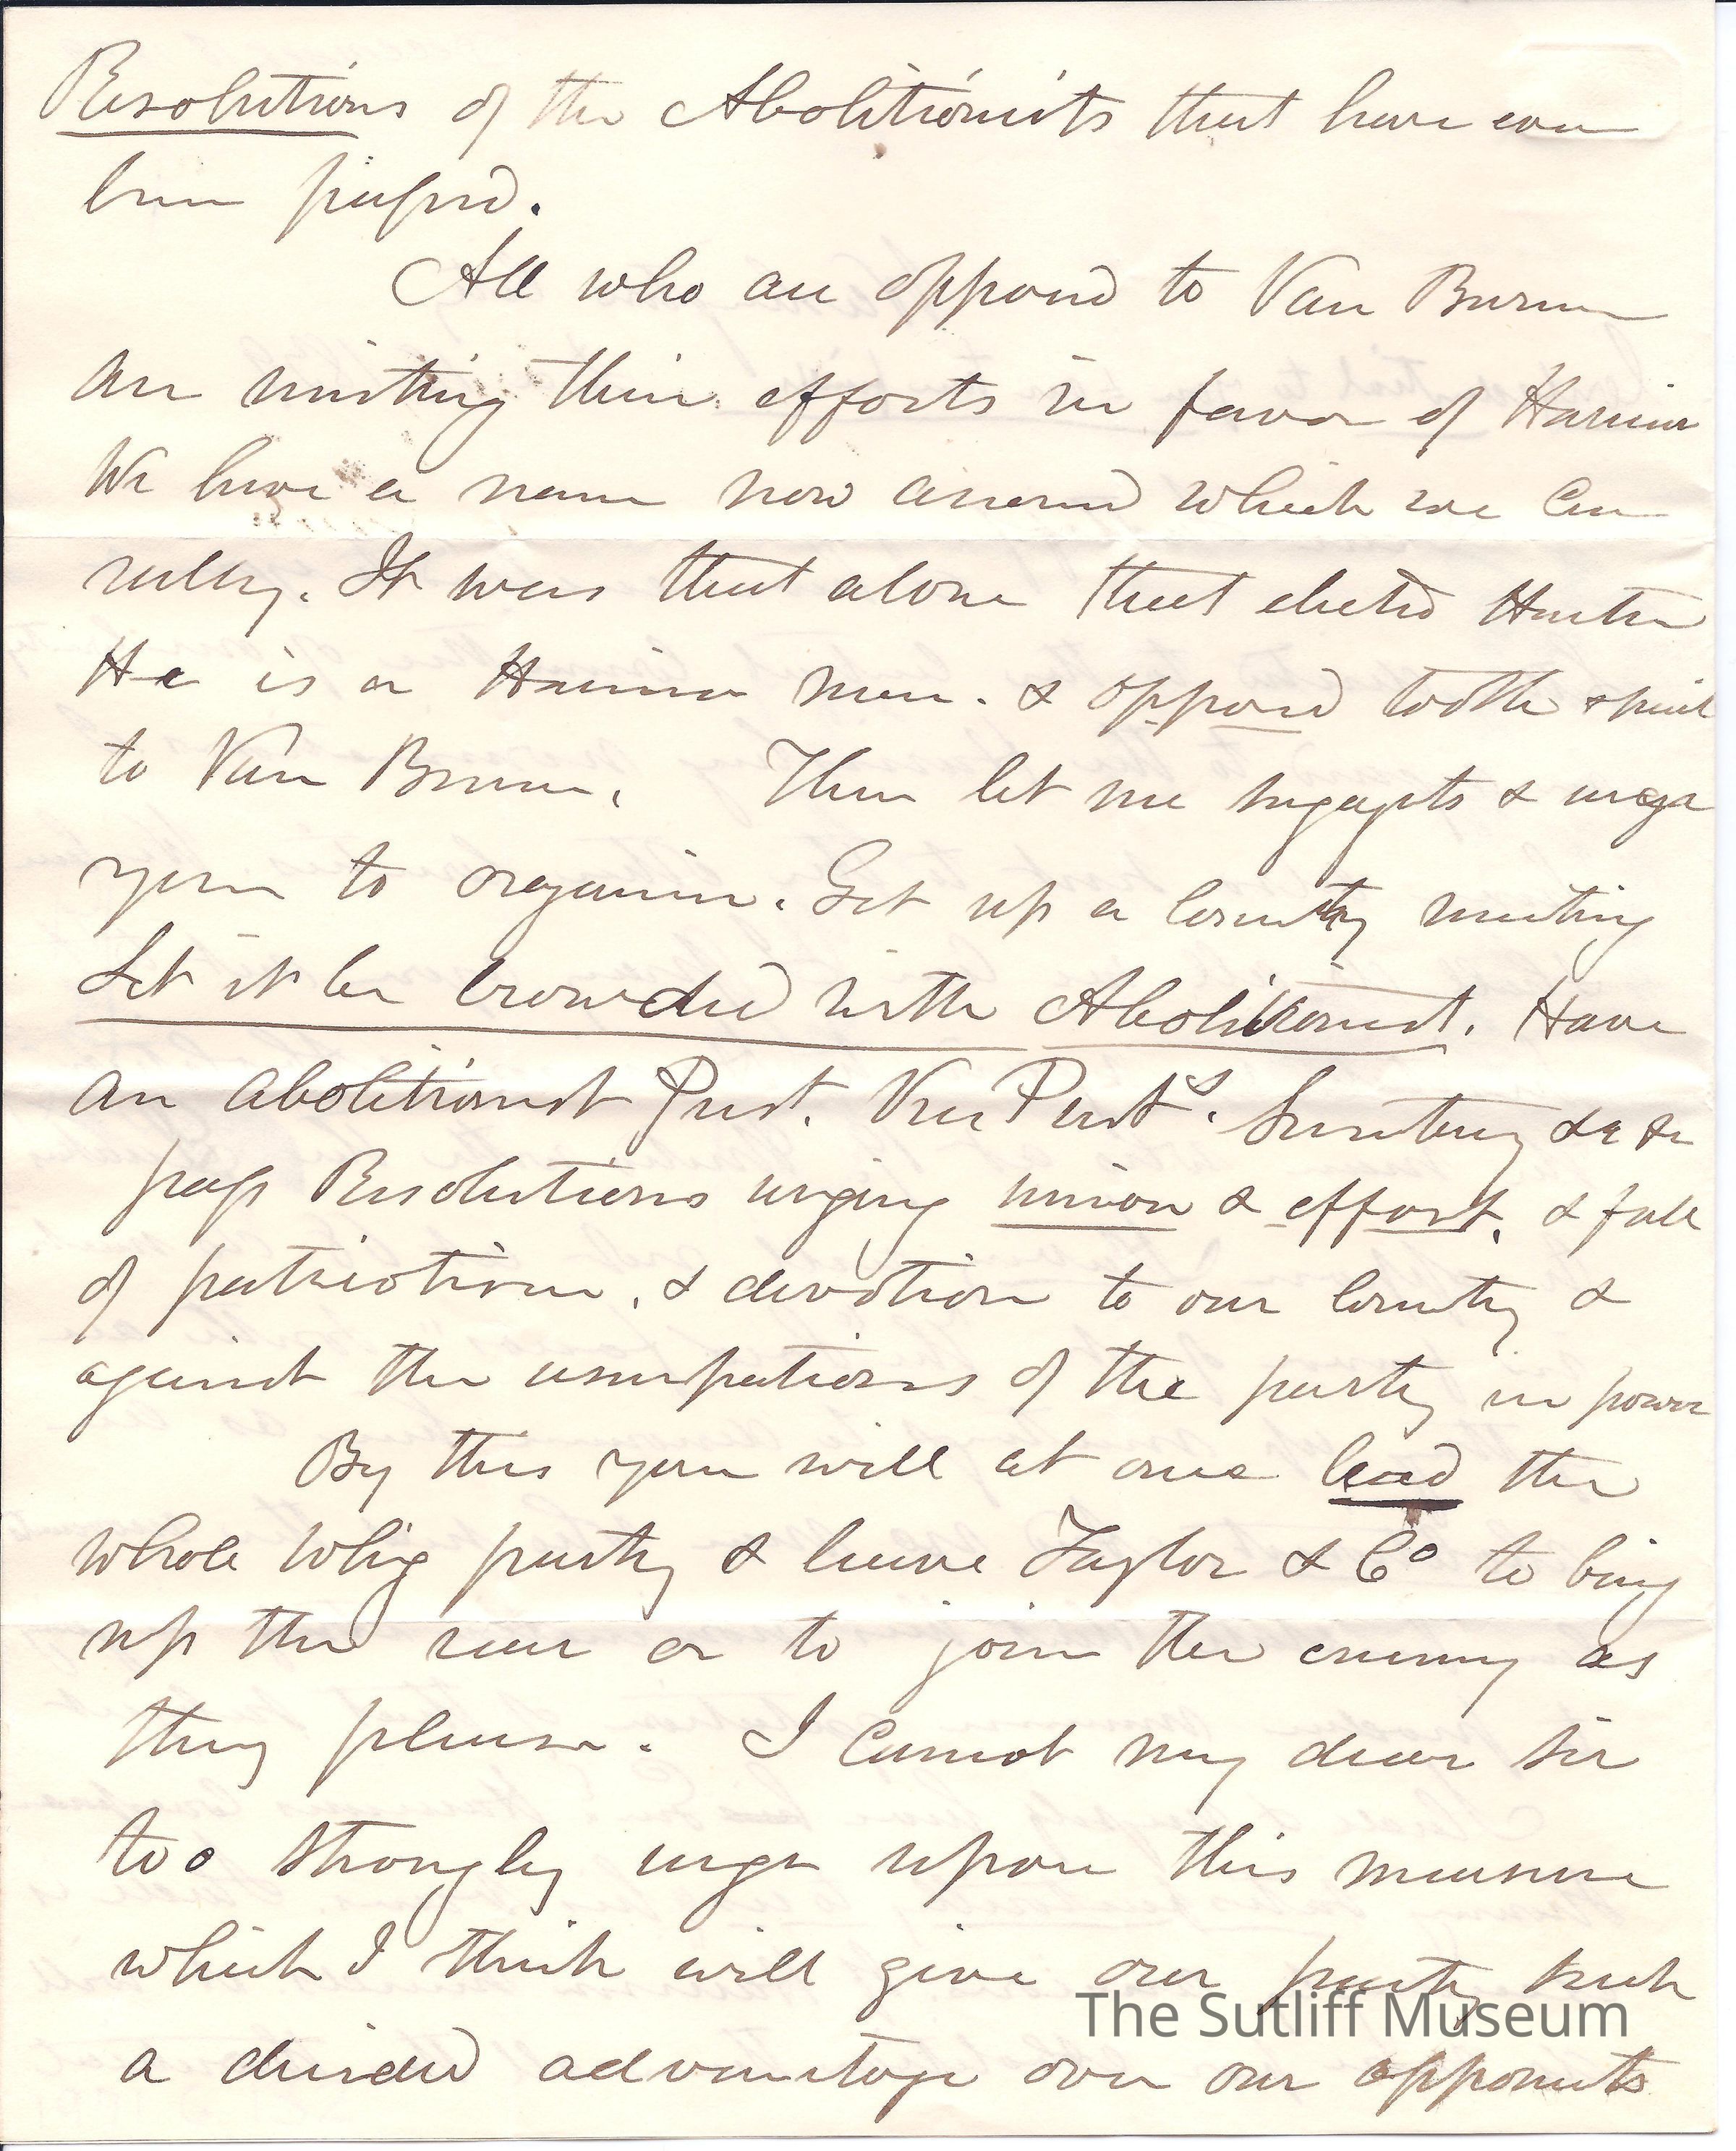 Resolutions of the Abolitionists that have ever
been passed.
All who are opposed to Van Buren
are uniting their efforts in favor of Harrison
We have a name now around which we can
rally. It was that alone that elected Hunter
He is a Harrison man. & opposed tooth & nail
to Van Buren. Then let me suggests & urge
you to organize. Get up a County meeting
Let it be crowded with Abolitionist. Have
an abolitionist Prest. Vice Prests. Secretary &c &c
pass Resolutions urging union & effort. & full
of patriotism, & devotion to our Country &
against the usurpations of the party in power
By this you will at once lead the
whole Whig party & leave Taylor & Co to bring
up the rear or to join the enemy as
they please. I cannot my dear Sir
too strongly urge upon this measure
which I think will give our party such
a decided advantage over our opponents
The Sutliff Museum